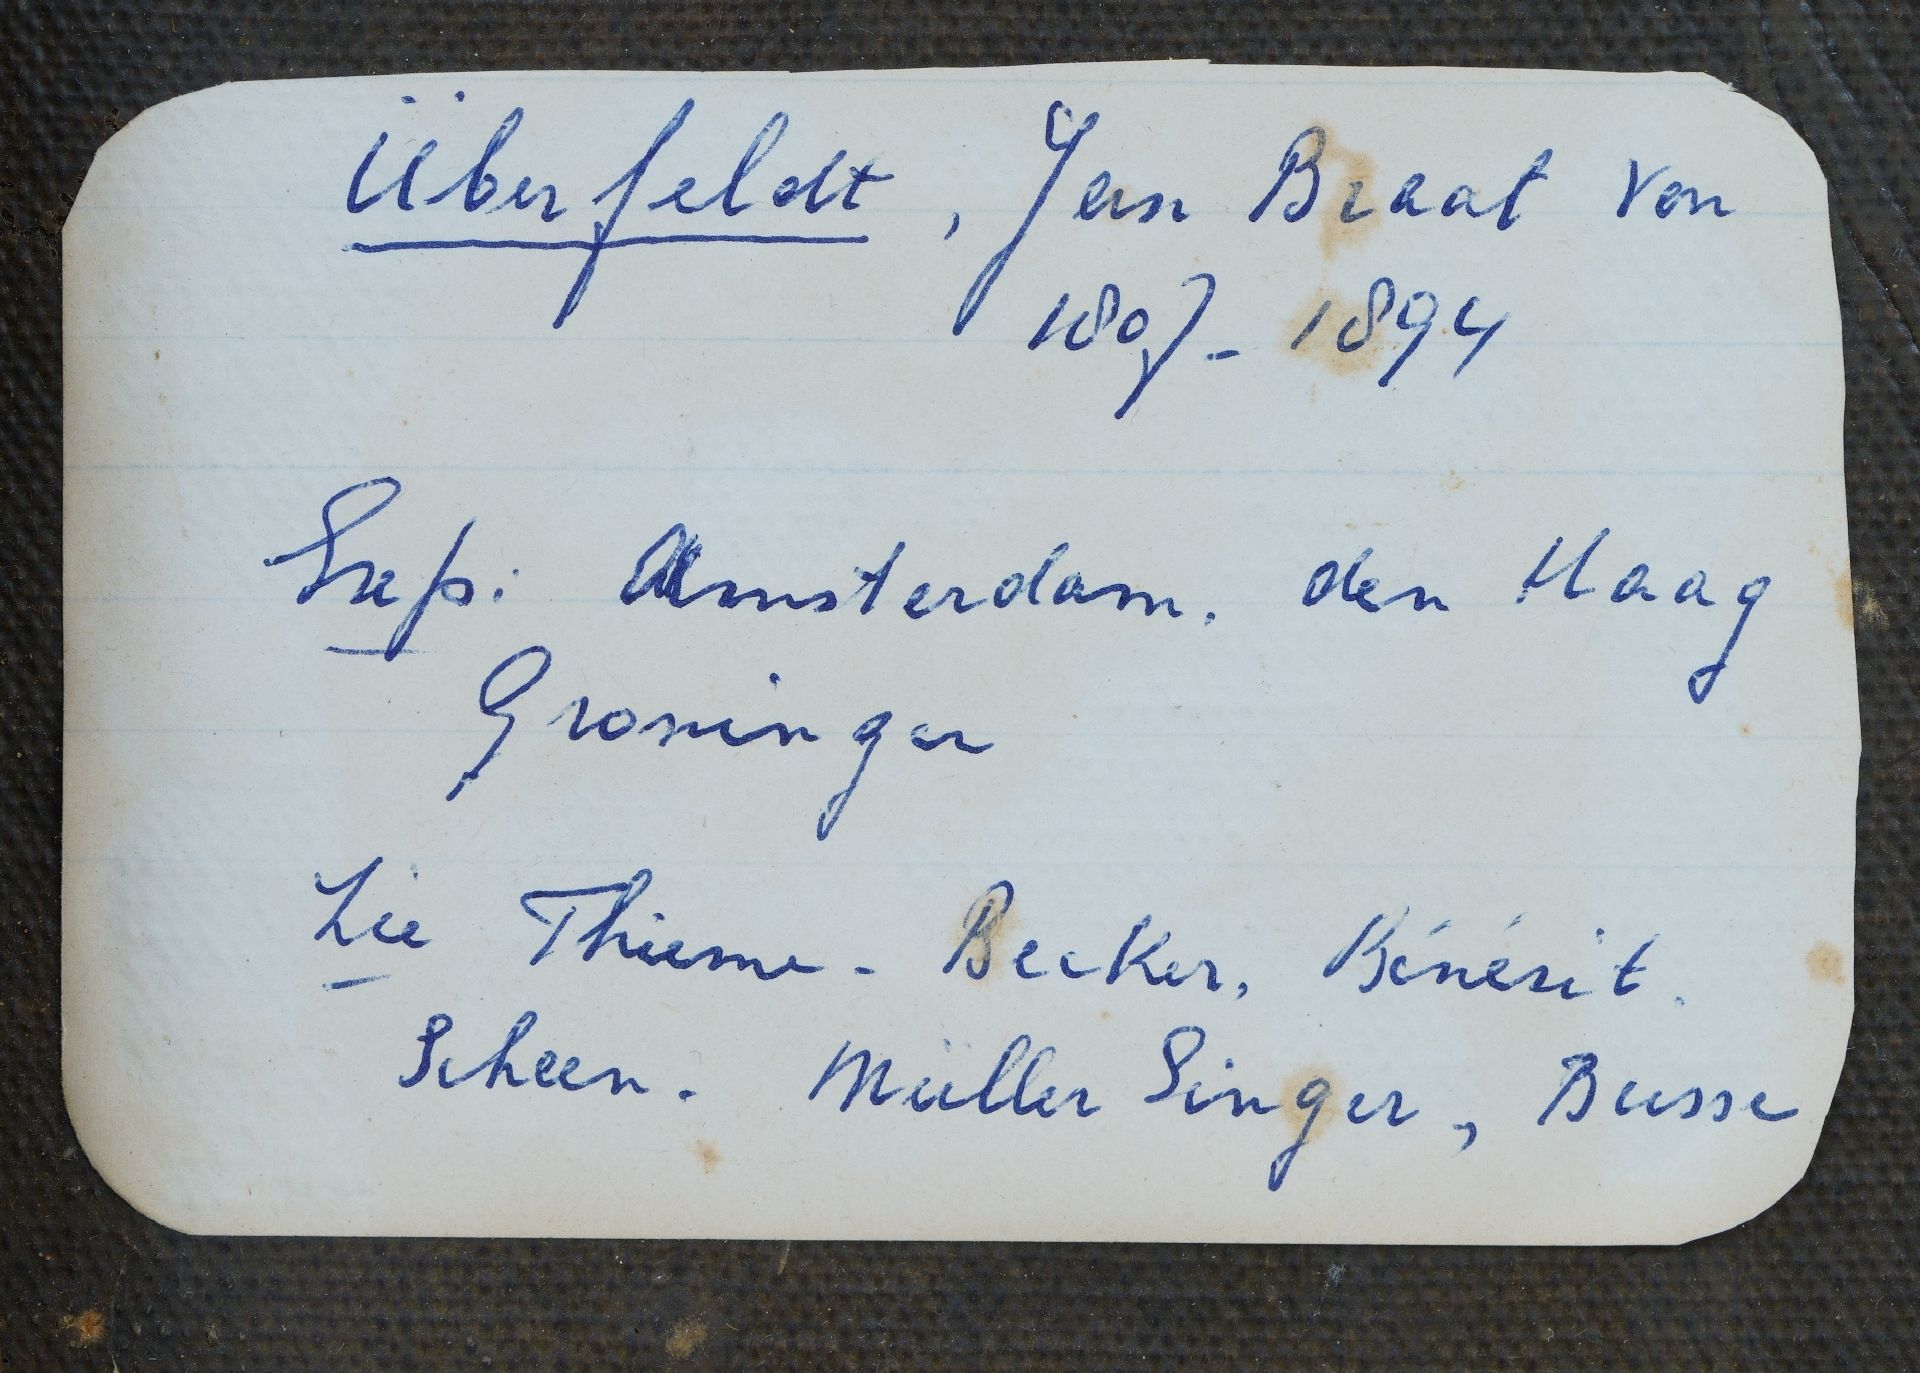 Überfeldt, Jan Braat von
1807-1894
Exp: Amsterdam. den Haag
Groningen
Lit Thieme - Becker, Bénézit.
Scheen. Müller Singer, Busse